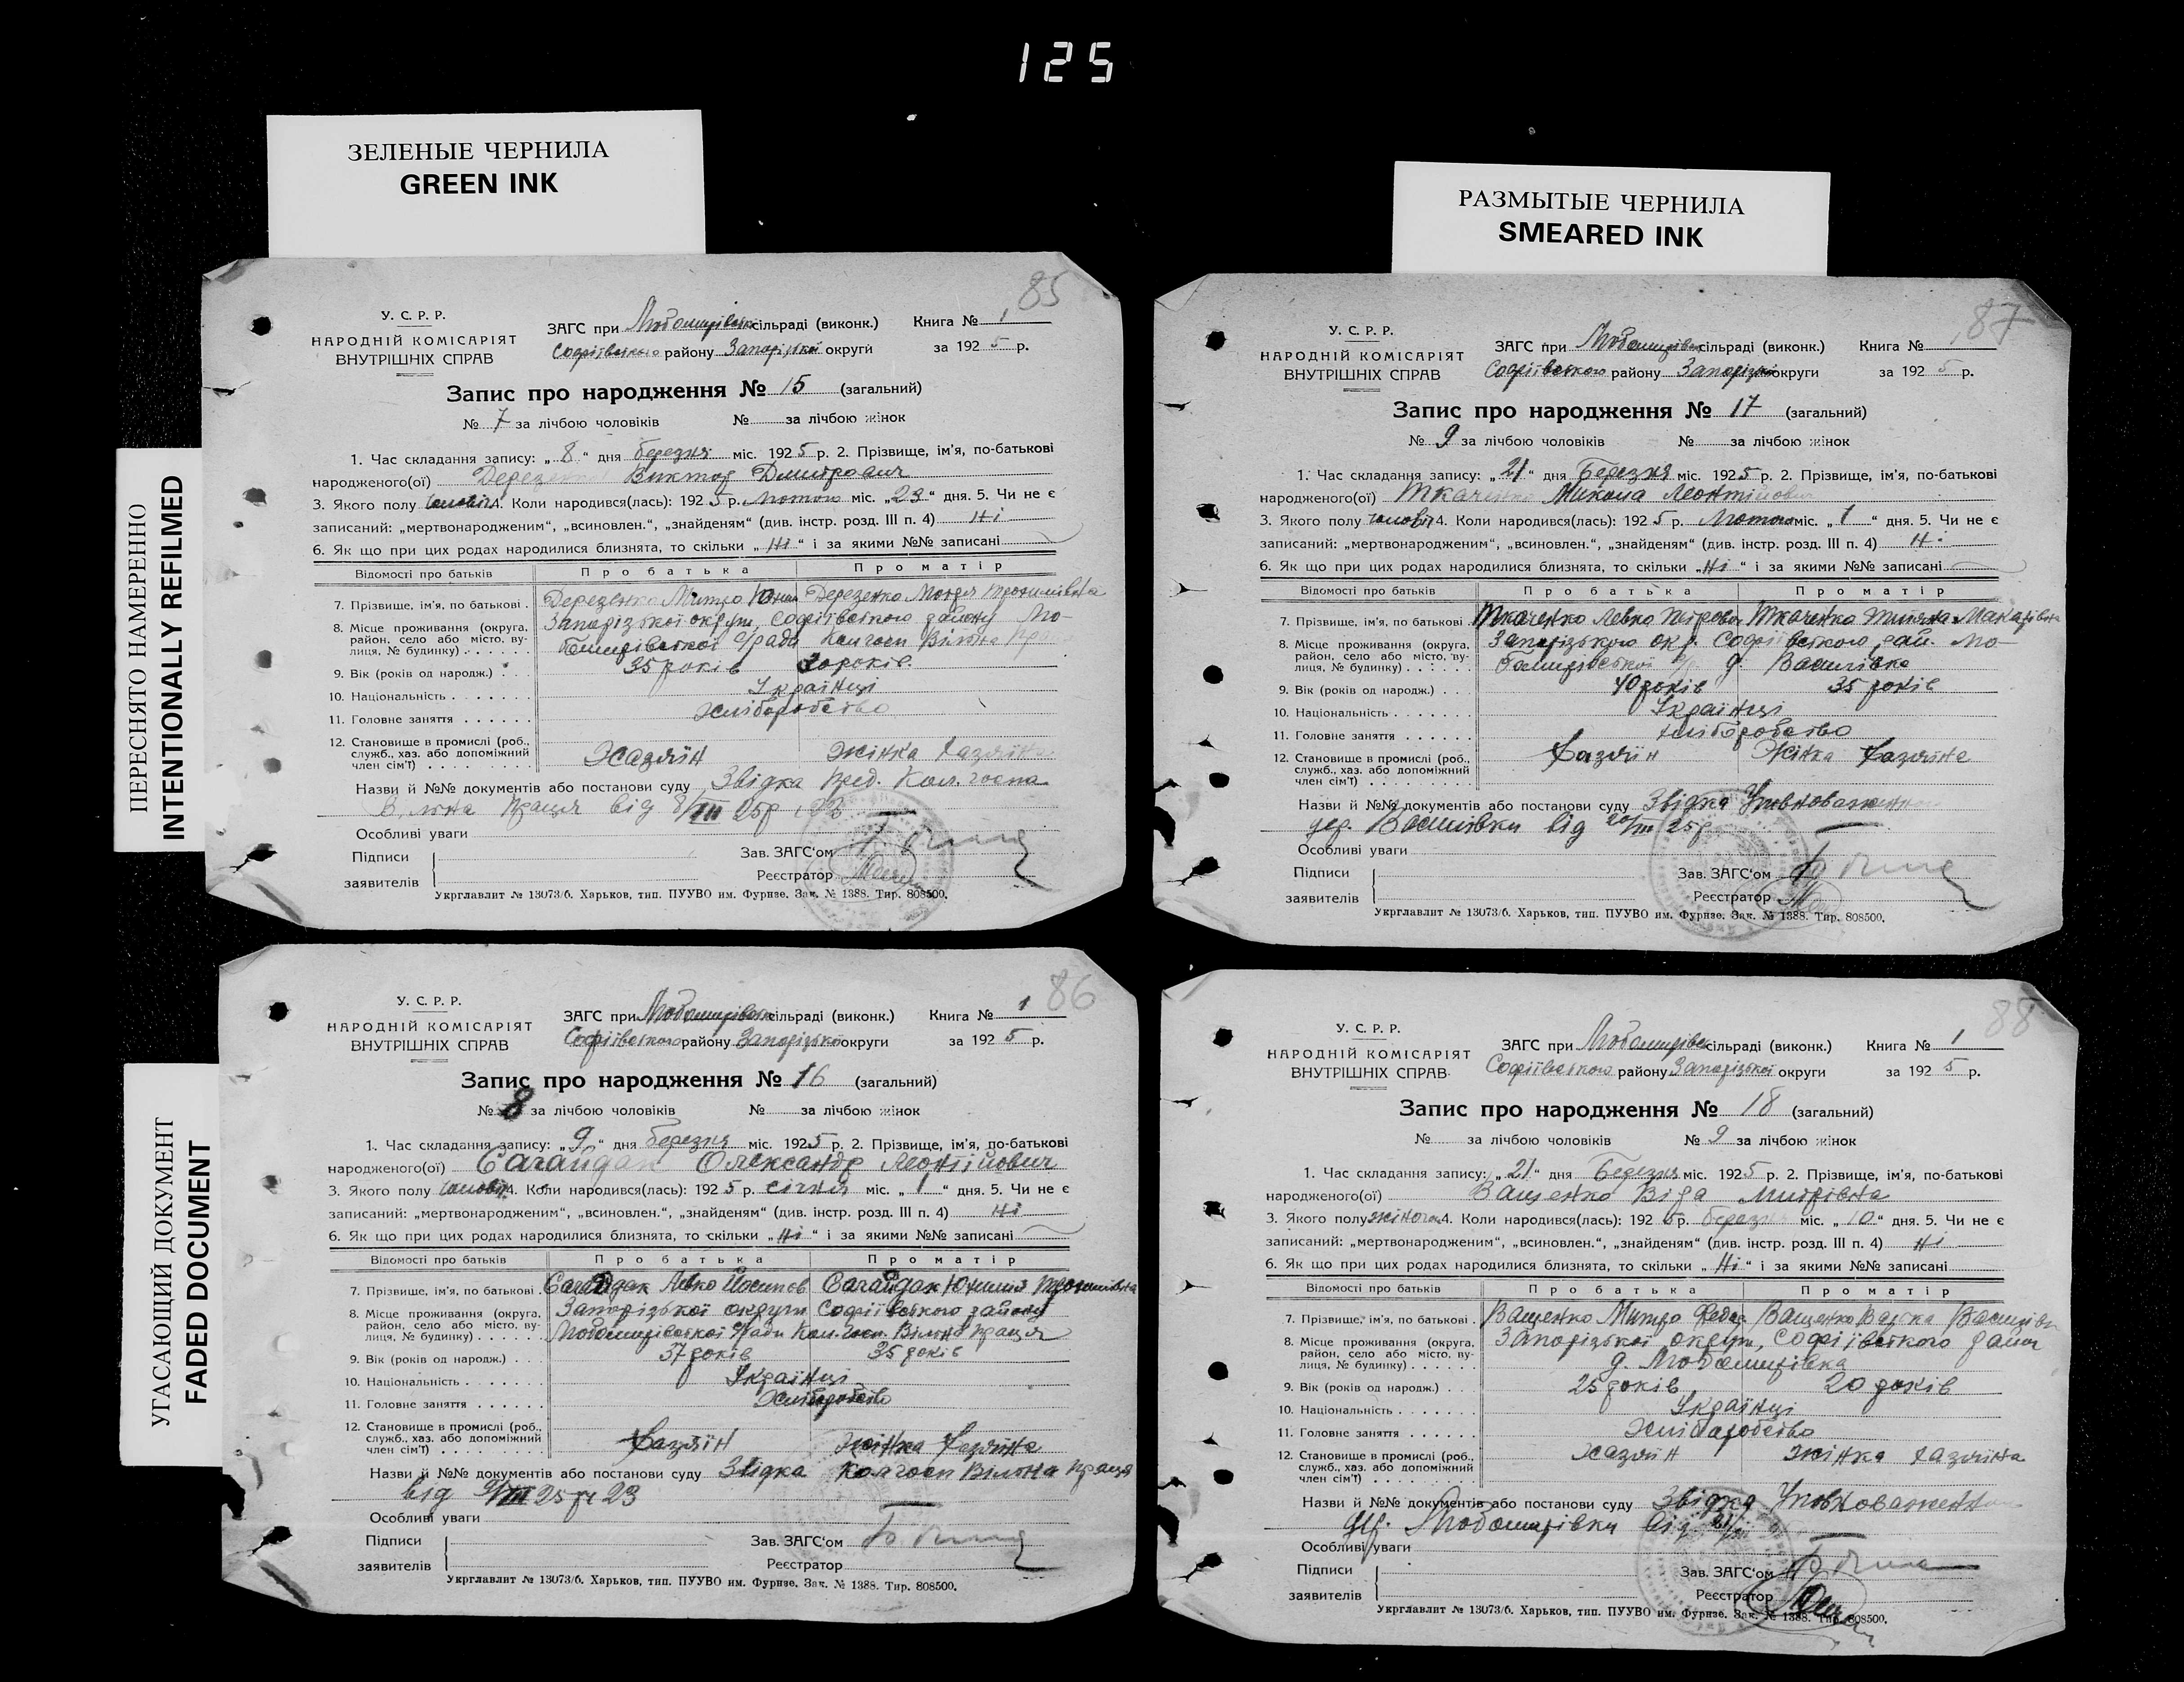 125
ЗЕЛЕНЫЕ ЧЕРНИЛА
GREEN INK
РАЗМЫТЫЕ ЧЕРНИЛА
SMEARED INK
ПЕРЕСНЯТО НАМЕРЕННО
INTENTIONALLY REFILMED
УГАСАЮЩИЙ ДОКУМЕНТ
FADED DOCUMENT
85
У. С. Р. Р.
НАРОДНІЙ КОМІСАРІЯТ
ВНУТРІШНІХ СПРАВ
ЗАГС при сільраді (виконк.) Книга № 1
Софіївського району Запорізької округи за 192 5 р.
Запис про народження № 15 (загальний)
№ 7 за лічбою чоловіків № за лічбою жінок
1. Час складання запису: „ 8 “ дня березня міс. 192 5 р. 2. Прізвище, ім'я, по-батькові
народженого(ої) Виктор Дмитрович
3. Якого полу 4. Коли народився(лась): 192 5 р. Лютого міс. „ 23 “ дня. 5. Чи не є
записаний: „мертвонародженим“, „всиновлен.“, „знайденям“ (див. інстр. розд. III п. 4) Ні
6. Як що при цих родах народилися близнята, то скільки „ Ні “ і за якими №№ записані
Відомості про батьків Про батька Про матір
7. Прізвище, ім'я, по батькові . Дерезенко Митро Дерезенко
8. Місце проживання (округа, район, село або місто, вулиця, № будинку) Запорізької округи, Софіївського району
с/рада Колгосп Вільна
9. Вік (років од народж.) . . . 35 років 30 років.
10. Національність . . . . . . . Українці
11. Головне заняття . . . . . . Хліборобство
12. Становище в промислі (роб., служб., хаз. або допоміжний член сім'ї) Хазяїн Жінка хазяїна
Назви й №№ документів або постанови суду Звідка Пред. Кол. госпа
Вільна Праця від 8/III 25р
Особливі уваги
Підписи Зав. ЗАГС'ом
заявителів Реєстратор
Укрглавлит № 13073/б. Харьков, тип. ПУУВО им. Фрунзе. Зак. № 1388. Тир. 808500.
86
У. С. Р. Р.
НАРОДНІЙ КОМІСАРІЯТ
ВНУТРІШНІХ СПРАВ
ЗАГС при сільраді (виконк.) Книга № 1
Софіївського району Запорізької округи за 192 5 р.
Запис про народження № 16 (загальний)
№ 8 за лічбою чоловіків № за лічбою жінок
1. Час складання запису: „ 9 “ дня березня міс. 192 5 р. 2. Прізвище, ім'я, по-батькові
народженого(ої) Сагайдак Олександр Леонтійович
3. Якого полу 4. Коли народився(лась): 192 5 р. січня міс. „ 1 “ дня. 5. Чи не є
записаний: „мертвонародженим“, „всиновлен.“, „знайденям“ (див. інстр. розд. III п. 4) Ні
6. Як що при цих родах народилися близнята, то скільки „ Ні “ і за якими №№ записані
Відомості про батьків Про батька Про матір
7. Прізвище, ім'я, по батькові . Сагайдак Левко Йосипов Сагайдак
8. Місце проживання (округа, район, село або місто, вулиця, № будинку) Запорізької округи Софіївського району
с/ради Кол.госп. Вільна праця
9. Вік (років од народж.) . . . 37 років 35 років
10. Національність . . . . . . . Українці
11. Головне заняття . . . . . . Хліборобство
12. Становище в промислі (роб., служб., хаз. або допоміжний член сім'ї) Хазяїн жінка хазяїна
Назви й №№ документів або постанови суду Звідка Колгосп Вільна праця
від 9/III 25 р 23
Особливі уваги
Підписи Зав. ЗАГС'ом
заявителів Реєстратор
Укрглавлит № 13073/б. Харьков, тип. ПУУВО им. Фрунзе. Зак. № 1388. Тир. 808500.
87
У. С. Р. Р.
НАРОДНІЙ КОМІСАРІЯТ
ВНУТРІШНІХ СПРАВ
ЗАГС при сільраді (виконк.) Книга №
Софіївського району Запорізької округи за 192 5 р.
Запис про народження № 17 (загальний)
№ 9 за лічбою чоловіків № за лічбою жінок
1. Час складання запису: „ 21 “ дня Березня міс. 192 5 р. 2. Прізвище, ім'я, по-батькові
народженого(ої) Ткаченко Микола Леонтійович
3. Якого полу 4. Коли народився(лась): 192 5 р. Лютого міс. „ 1 “ дня. 5. Чи не є
записаний: „мертвонародженим“, „всиновлен.“, „знайденям“ (див. інстр. розд. III п. 4) Ні
6. Як що при цих родах народилися близнята, то скільки „ Ні “ і за якими №№ записані
Відомості про батьків Про батька Про матір
7. Прізвище, ім'я, по батькові . Ткаченко Левко Петрович Ткаченко Тетяна Макарівна
8. Місце проживання (округа, район, село або місто, вулиця, № будинку) Запорізького окр. Софіївського рай.
д. Васлівка
9. Вік (років од народж.) . . . 40 років 35 років
10. Національність . . . . . . . Українці
11. Головне заняття . . . . . . хліборобство
12. Становище в промислі (роб., служб., хаз. або допоміжний член сім'ї) Хазяїн Жінка Хазяїна
Назви й №№ документів або постанови суду Звідка
дер. від 20/III 25р
Особливі уваги
Підписи Зав. ЗАГС'ом
заявителів Реєстратор
Укрглавлит № 13073/б. Харьков, тип. ПУУВО им. Фрунзе. Зак. № 1388. Тир. 808500.
88
У. С. Р. Р.
НАРОДНІЙ КОМІСАРІЯТ
ВНУТРІШНІХ СПРАВ
ЗАГС при сільраді (виконк.) Книга № 1
Софіївського району Запорізької округи за 192 5 р.
Запис про народження № 18 (загальний)
№ за лічбою чоловіків № 9 за лічбою жінок
1. Час складання запису: „ 21 “ дня Березня міс. 192 5 р. 2. Прізвище, ім'я, по-батькові
народженого(ої) Ващенко Віра Митрівна
3. Якого полу 4. Коли народився(лась): 192 5 р. березня міс. „ 10 “ дня. 5. Чи не є
записаний: „мертвонародженим“, „всиновлен.“, „знайденям“ (див. інстр. розд. III п. 4) Ні
6. Як що при цих родах народилися близнята, то скільки „ Ні “ і за якими №№ записані
Відомості про батьків Про батька Про матір
7. Прізвище, ім'я, по батькові . Ващенко Митро Федор Ващенко
8. Місце проживання (округа, район, село або місто, вулиця, № будинку) Запорізької округи, Софіївського
д. Любомирівка
9. Вік (років од народж.) . . . 25 років 20 років
10. Національність . . . . . . . Українці
11. Головне заняття . . . . . . Хліборобство
12. Становище в промислі (роб., служб., хаз. або допоміжний член сім'ї) Хазяїн жінка хазяїна
Назви й №№ документів або постанови суду Звідка
дер. Любомирівки від 21/III
Особливі уваги
Підписи Зав. ЗАГС'ом
заявителів Реєстратор
Укрглавлит № 13073/б. Харьков, тип. ПУУВО им. Фрунзе. Зак. № 1388. Тир. 808500.